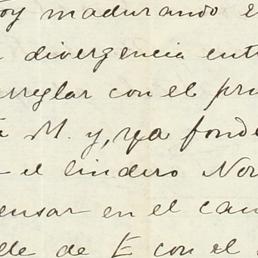 oy madurando e
divergencia entr
rreglar con el pr
M. y, ya fond
el lindero Nor
ensar en el cam
lle de E con el